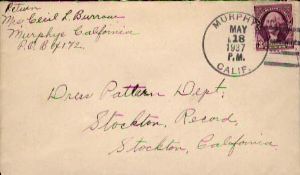 Return
Mrs Cecil L Burrow
Murphys California
P.O. B 172
MURPHYS
MAY
18
1937
P.M.
CALIF.
Dress Pattern Dept.
Stockton, Record,
Stockton, California